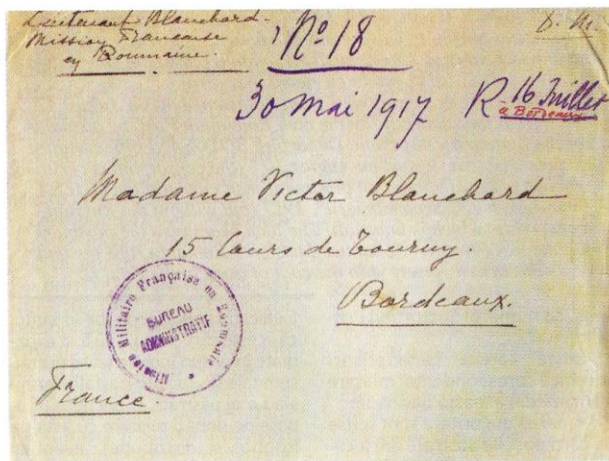 Lieutenant Blanchard.
Mission Francaise
en Roumanie.
Nº 18
30 Mai 1917
R 16 Juillet
à Bordeaux
Madame Victor Blanchard
15 Cours de Tourny.
Bordeaux.
Mission Militaire Française en Roumanie
BUREAU
ADMINISTRATIF
France.